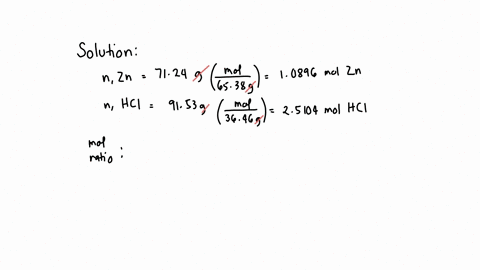 Solution:
n, Zn = 71.24 g (mol / 65.38 g) = 1.0896 mol Zn
n, HCl = 91.53 g (mol / 36.46 g) = 2.5104 mol HCl
mol
ratio :